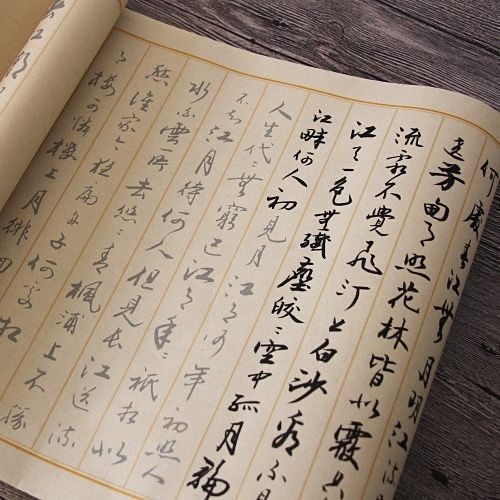 何處春江無月明江流
遶芳甸月照花林皆似霰
流霜不覺飛汀上白沙看不見
江天一色無纖塵皎〻空中孤月輪
江畔何人初見月江月何年初照人
人生代〻無窮已江月年〻祇相似
不知江月待何人但見長江送流
水白雲一片去悠〻青楓浦上不勝
愁誰家今夜扁舟子何處相
月樓可憐樓上月徘徊